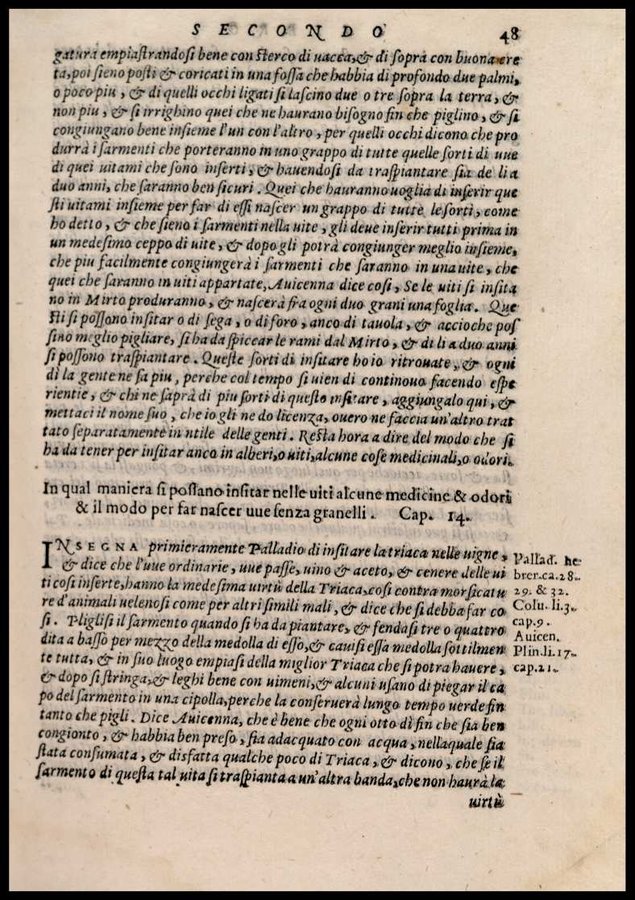 SECONDO 48
gatura empiastrandosi bene con sterco di vacca, & di sopra con buona cre
ta, poi sieno posti & coricati in una fossa che habbia di profondo due palmi,
o poco piu, & di quelli occhi ligati si lascino due o tre sopra la terra, &
non piu, & si irrighino quei che ne haurano bisogno fin che piglino, & si
congiungano bene insieme l'un con l'altro, per quelli occhi dicono che pro
durrà i sarmenti che porteranno in uno grappo di tutte quelle sorti di uue
di quei uitami che sono inserti, & hauendosi da traspiantare sia de lì a
duo anni, che saranno ben sicuri. Quei che hauranno uoglia di inserir que
sti uitami insieme per far di essi nascer un grappo di tutte le sorti, come
ho detto, & che sieno i sarmenti nella uite, gli deue inserir tutti prima in
un medesimo ceppo di uite, & dopo gli potrà congiunger meglio insieme,
che piu facilmente congiungerà i sarmenti che saranno in una uite, che
quei che saranno in uiti appartate, Auicenna dice cosi, Se le uiti si insita
no in Mirto produranno, & nascerà fra ogni duo grani una foglia. Que
sti si possono insitar o di sega, o di foro, anco di tauola, & accioche pos
sino meglio pigliare, si ha da spiccar le rami dal Mirto, & di li a duo anni
si possono traspiantare. Queste sorti di insitare ho io ritrouate, & ogni
dì la gente ne sa piu, perche col tempo si uien di continouo facendo espe
rientie, & chi ne saprà di piu sorti di questo insitare, aggiungalo qui, &
mettaci il nome suo, che io gli ne do licenza, ouero ne faccia un'altro trat
tato separatamente in utile delle genti. Resta hora a dire del modo che si
ha da tener per insitar anco in alberi, o uiti, alcune cose medicinali, o odori.
In qual maniera si possano insitar nelle uiti alcune medicine & odori
& il modo per far nascer uue senza granelli. Cap. 14.
INSEGNA primieramente Palladio di insitare la triaca nelle uigne,
& dice che l'uue ordinarie, uue passe, uino & aceto, & cenere delle ui
ti cosi inserte, hanno la medesima virtù della Triaca, cosi contra morsicatu
re d'animali uelenosi come per altri simili mali, & dice che si debba far co
si. Pliglisi il sarmento quando si ha da piantare, & fendasi tre o quattro
dita a basso per mezzo della medolla di esso, & cauisi essa medolla sottilmen
te tutta, & in suo luogo empiasi della miglior Triaca che si potra hauere,
& dopo si stringa, & leghi bene con uimeni, & alcuni usano di piegar il ca
po del sarmento in una cipolla, perche la conseruerà lungo tempo verde fin
tanto che pigli. Dice Auicenna, che è bene che ogni otto dì fin che sia ben
congionto, & habbia ben preso, sia adacquato con acqua, nellaquale sia
stata consumata, & disfatta qualche poco di Triaca, & dicono, che se il
sarmento di questa tal uita si traspianta a un'altra banda, che non haurà la
uirtù
Pallad. he-
brer.ca.28.
29. & 32.
Colu.li.3.
cap.9.
Auicen.
Plin.li.17.
cap.21.